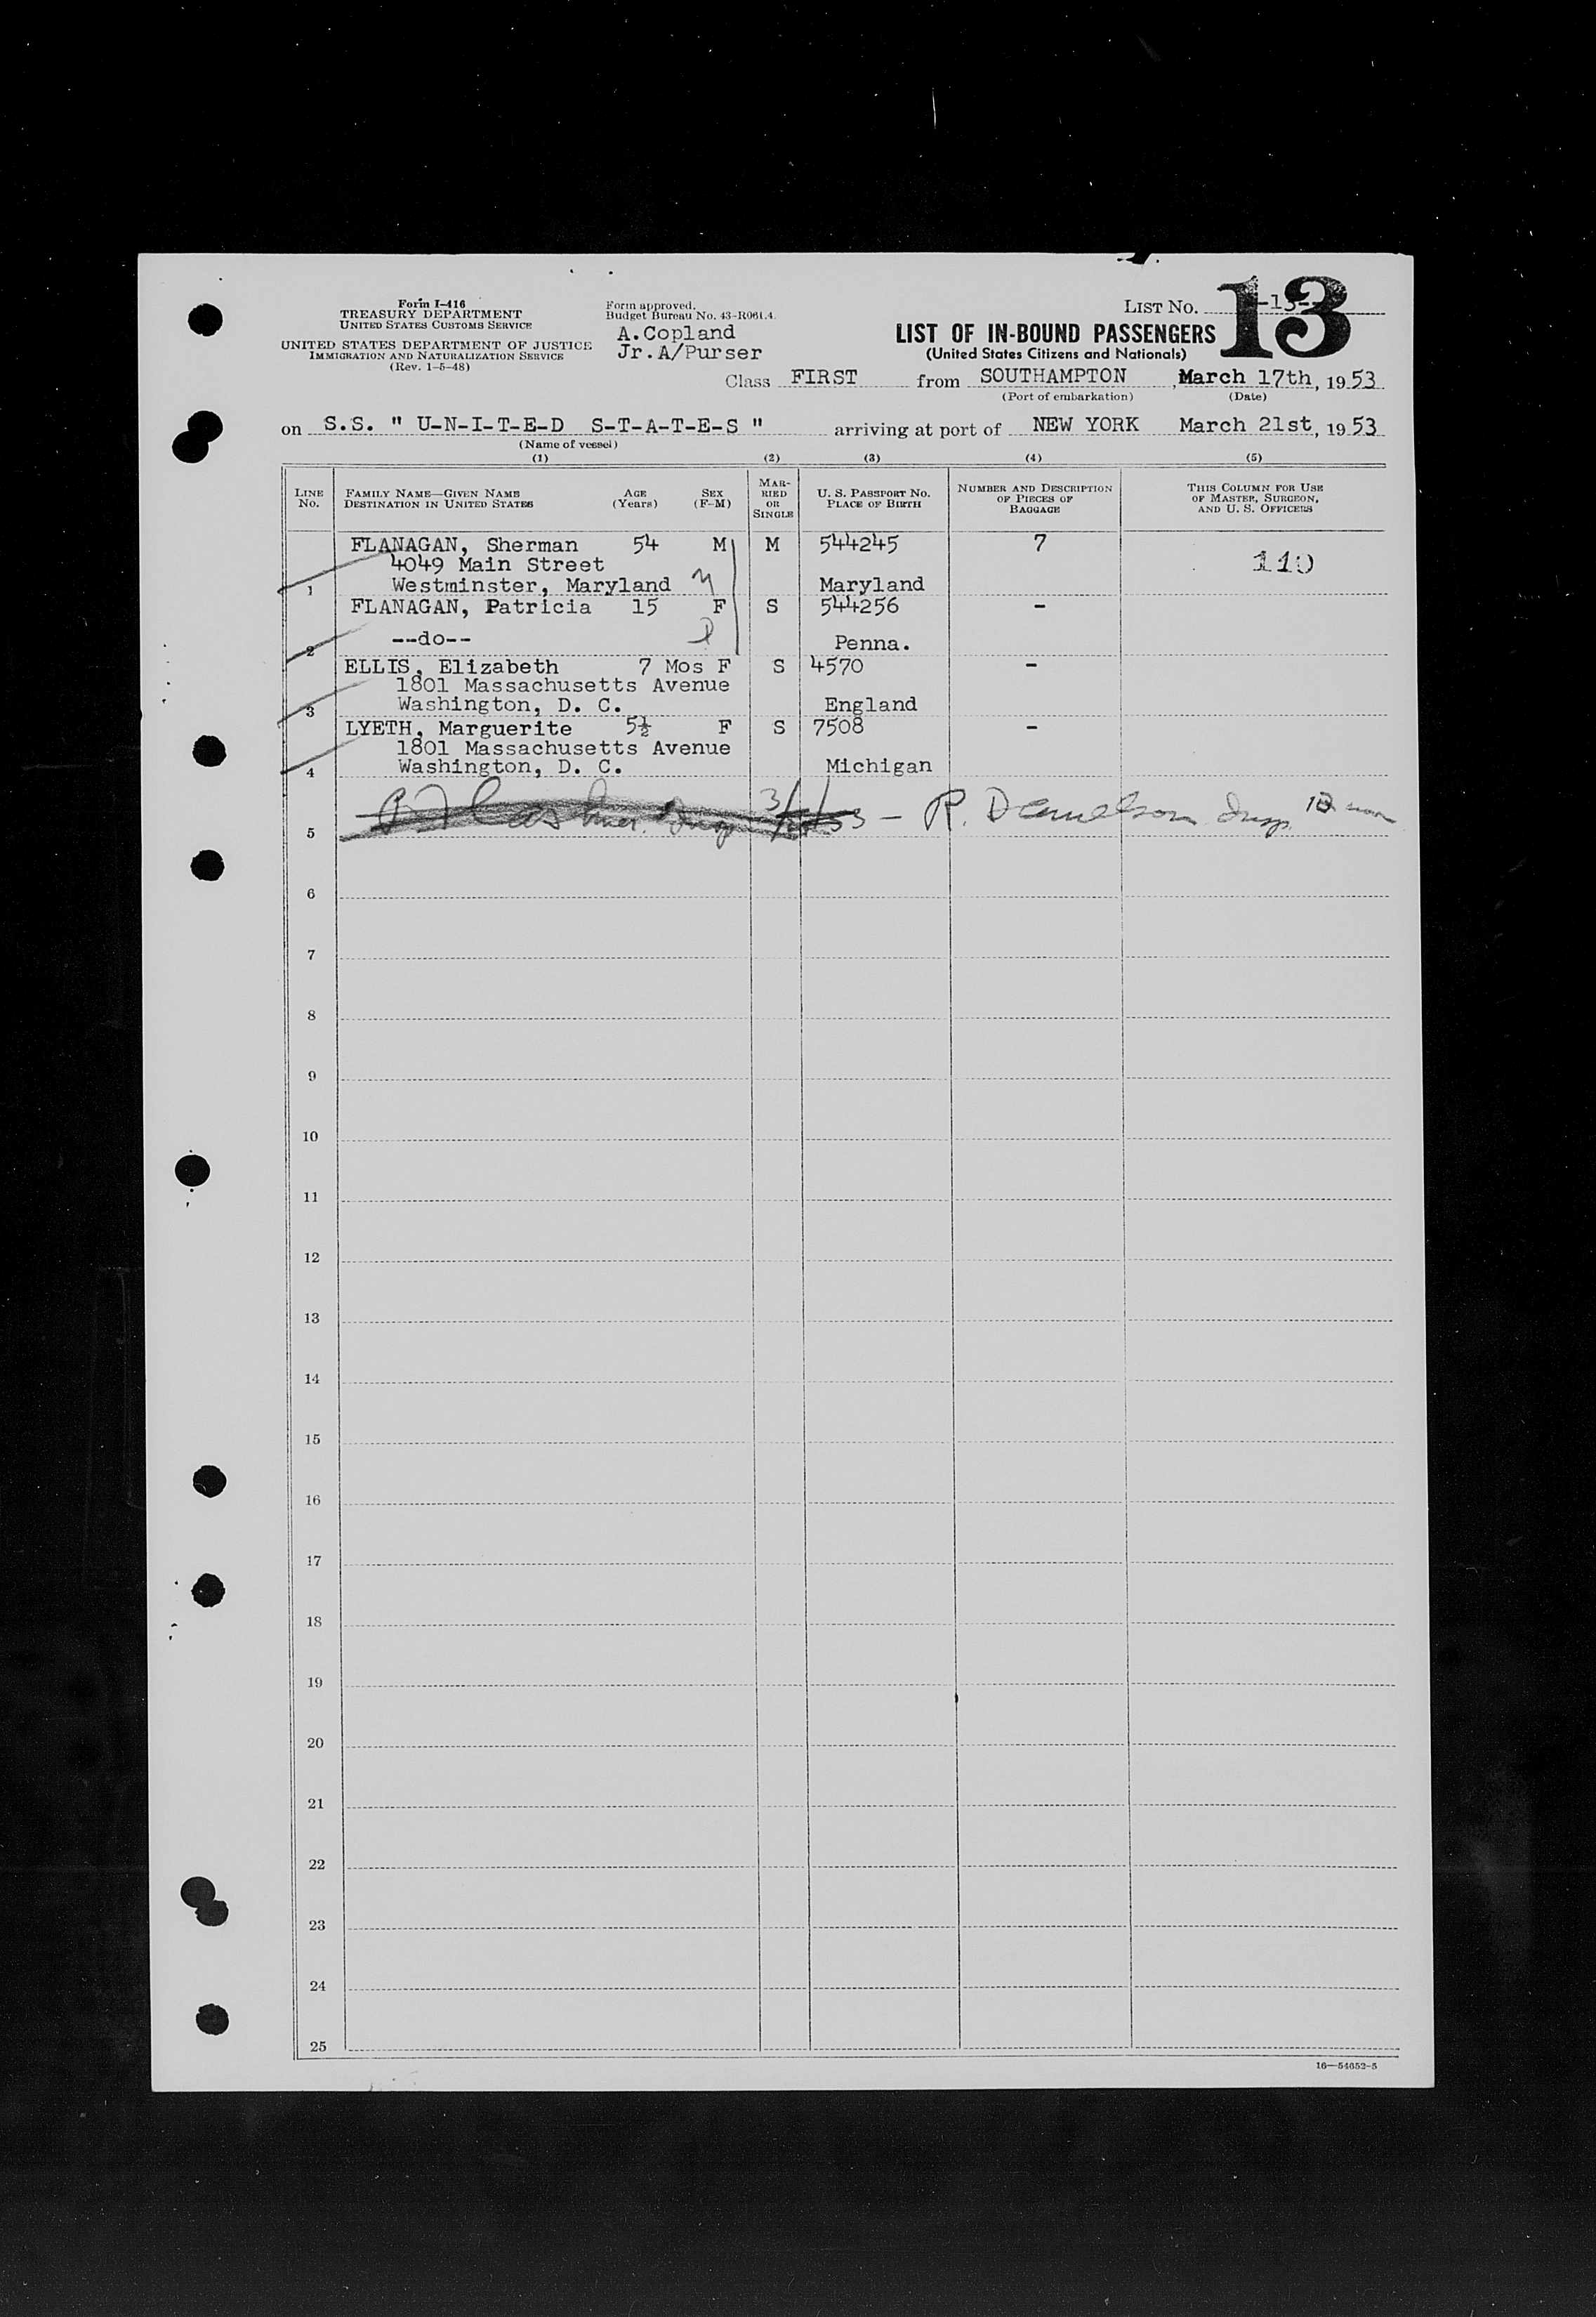 Form I-416
TREASURY DEPARTMENT
UNITED STATES CUSTOMS SERVICE
UNITED STATES DEPARTMENT OF JUSTICE
IMMIGRATION AND NATURALIZATION SERVICE
(Rev. 1-5-48)
Form approved.
Budget Bureau No. 43-R061.4.
A.Copland
Jr.A/Purser
LIST No. -13-
13
LIST OF IN-BOUND PASSENGERS
(United States Citizens and Nationals)
Class FIRST from SOUTHAMPTON, March 17th, 1953
(Port of embarkation) (Date)
on S.S. " U-N-I-T-E-D S-T-A-T-E-S " arriving at port of NEW YORK March 21st, 1953
(Name of vessel)
(1) (2) (3) (4) (5)
LINE No.
FAMILY NAME—GIVEN NAME
DESTINATION IN UNITED STATES
AGE (Years)
SEX (F-M)
MARRIED OR SINGLE
U. S. PASSPORT No.
PLACE OF BIRTH
NUMBER AND DESCRIPTION OF PIECES OF BAGGAGE
THIS COLUMN FOR USE OF MASTER, SURGEON, AND U. S. OFFICERS
FLANAGAN, Sherman 54 M M 544245 7
4049 Main Street 110
1 Westminster, Maryland Maryland
FLANAGAN, Patricia 15 F S 544256 -
2 --do-- Penna.
ELLIS, Elizabeth 7 Mos F S 4570 -
1801 Massachusetts Avenue
3 Washington, D. C. England
LYETH, Marguerite 5½ F S 7508 -
1801 Massachusetts Avenue
4 Washington, D. C. Michigan
5 R.
6
7
8
9
10
11
12
13
14
15
16
17
18
19
20
21
22
23
24
25
16—54652-5